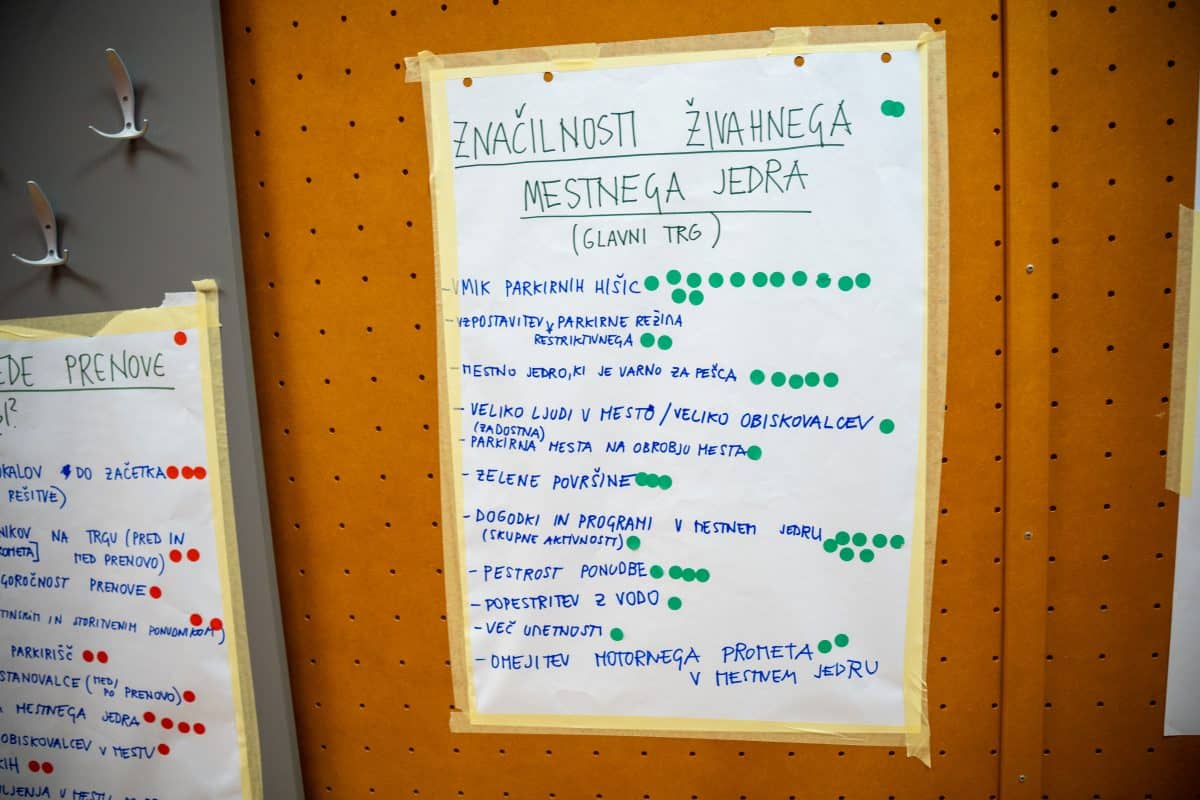 ZNAČILNOSTI ŽIVAHNEGA
MESTNEGA JEDRA
(GLAVNI TRG)
- VMIK PARKIRNIH HIŠIC
- VZPOSTAVITEV PARKIRNE REŽIMA
RESTRIKTIVNEGA
- MESTNO JEDRO, KI JE VARNO ZA PEŠCA
- VELIKO LJUDI V MESTO / VELIKO OBISKOVALCEV
(ZADOSTNA)
- PARKIRNA MESTA NA OBROBJU MESTA
- ZELENE POVRŠINE
- DOGODKI IN PROGRAMI V MESTNEM JEDRU
(SKUPNE AKTIVNOSTI)
- PESTROST PONUDBE
- POPESTRITEV Z VODO
- VEČ UMETNOSTI
- OMEJITEV MOTORNEGA PROMETA
V MESTNEM JEDRU
EDE PRENOVE
?
KALOV DO ZAČETKA
REŠITVE)
NIKOV NA TRGU (PRED IN
ROMETA] MED PRENOVO)
GOROČNOST PRENOVE
TINSKIM IN STORITVENIM PONUDNIKOM)
PARKIRIŠČ
STANOVALCE (MED/
PO PRENOVO)
MESTNEGA JEDRA
OBISKOVALCEV V MESTU
KIH
LJENJA V MESTU